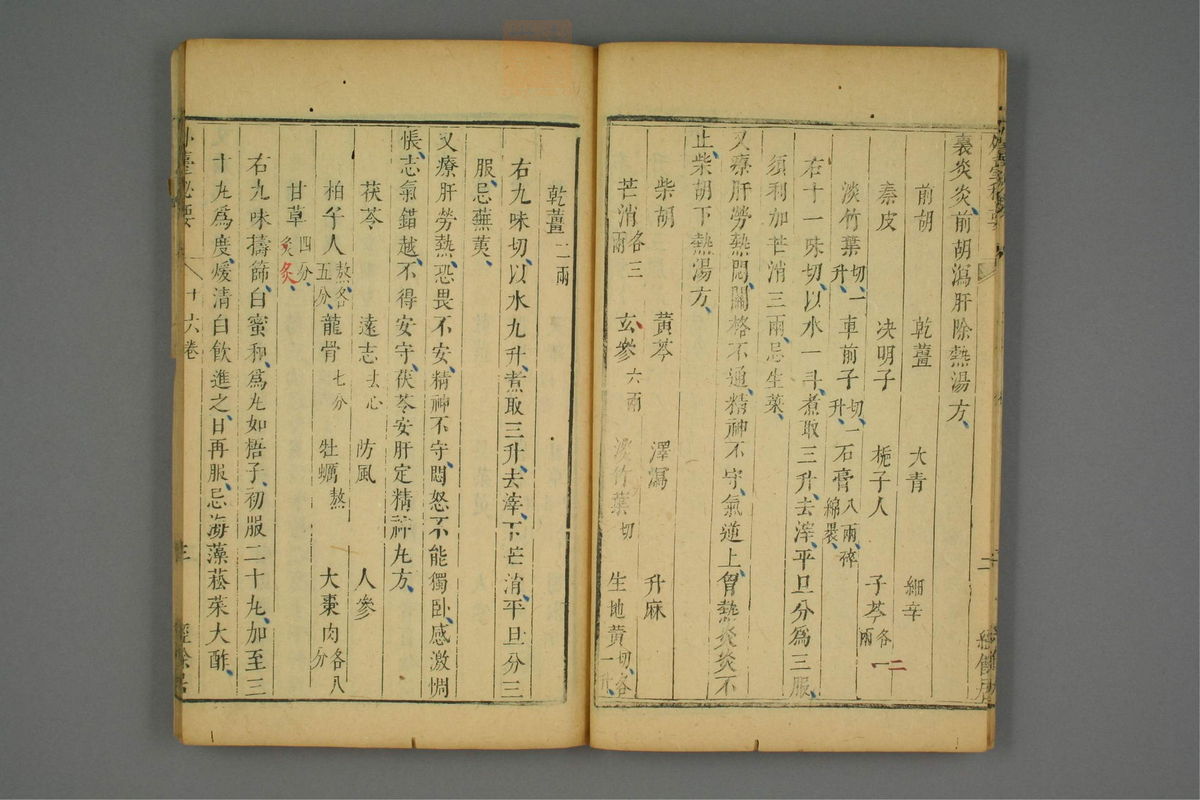 裏炎炎前胡瀉肝除熱湯方
前胡 乾薑 大青 細辛
秦皮 決明子 梔子人 子芩各二兩
淡竹葉切一升 車前子切一升 石膏八兩碎綿裹
右十一味切以水一斗煮取三升去滓平旦分爲三服
須利加芒消三兩忌生菜
又療肝勞熱悶關格不通精神不守氣逆上胷熱炎炎不
止柴胡下熱湯方
柴胡 黃芩 澤瀉 升麻
芒消各三兩 玄參六兩 淡竹葉切 生地黃切各一升
乾薑二兩
右九味切以水九升煮取三升去滓下芒消平旦分三
服忌蕪荑
又療肝勞熱恐畏不安精神不守悶怒不能獨臥感激惆
悵志氣錯越不得安守茯苓安肝定精神丸方
茯苓 遠志去心 防風 人參
柏子人熬各五分 龍骨七分 牡蠣熬 大棗肉各八分
甘草四分炙
右九味擣篩白蜜和爲丸如梧子初服二十丸加至三
十丸爲度煖清白飲進之日再服忌海藻菘菜大酢
外臺秘要 十六卷 三 經餘居